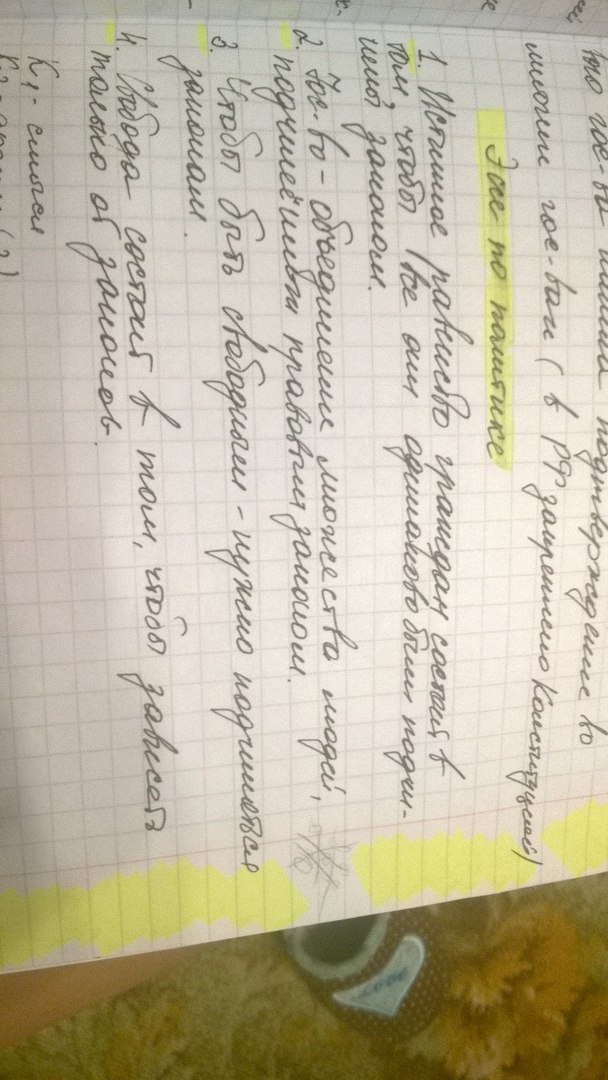 гос-ва нашла подтверждение во
многих гос-вах (в РФ закреплено Конституцией)
Эссе по политике
1. Истинное равенство граждан состоит в
том, чтобы все они одинаково были подчи-
нены законам.
2. Гос-во - объединение множества людей,
подчинённых правовым законам.
3. Чтобы быть свободным - нужно подчиняться
законам.
4. Свобода состоит в том, чтобы зависеть
только от законов.
К1 - смысл